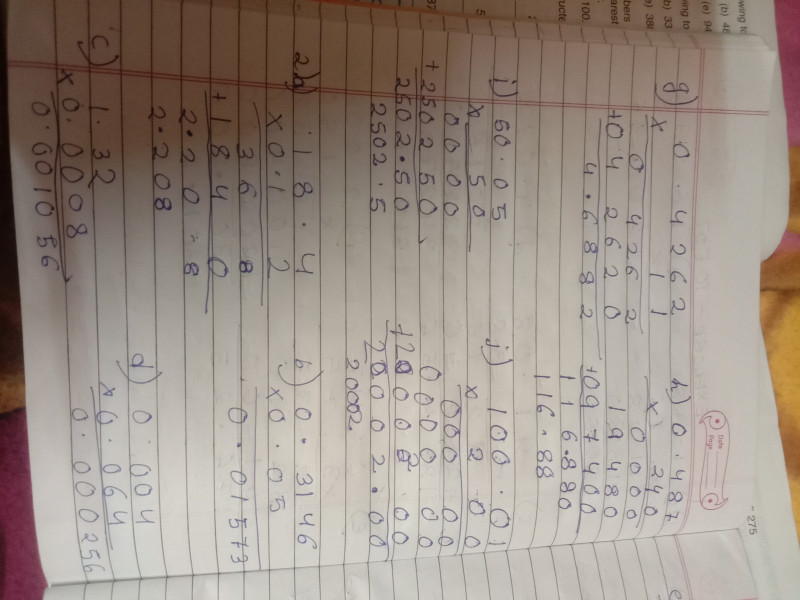 275
Date
Page
g) 0.4262
× 11
04262
+042620
4.6882
h) 0.487
× 240
0000
19480
+097400
116.880
116.88
i) 50.05
× 50
0000
+250250
2502.50
2502.5
j) 100.01
× 200
00000
000000
+2000200
20002.00
20002
2)a) 18.4
×0.12
368
+1840
2.208
2.208
b) 0.3146
×0.05
0.01573
c) 1.32
×0.0008
0.001056
d) 0.004
×0.064
0.000256
(b) 48
(e) 94
(b) 33
100.